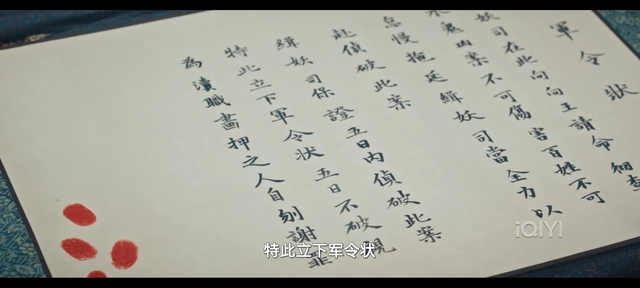 軍令狀
妖司在此向向王請命細查
鬼凶案不可傷害百姓不可
怠慢拖延緝妖司當全力以
赴偵破此案
緝妖司保證五日內偵破此案
特此立下軍令状五日不破視
為瀆職畫押之人自刎謝罪
特此立下军令状
iQIYI